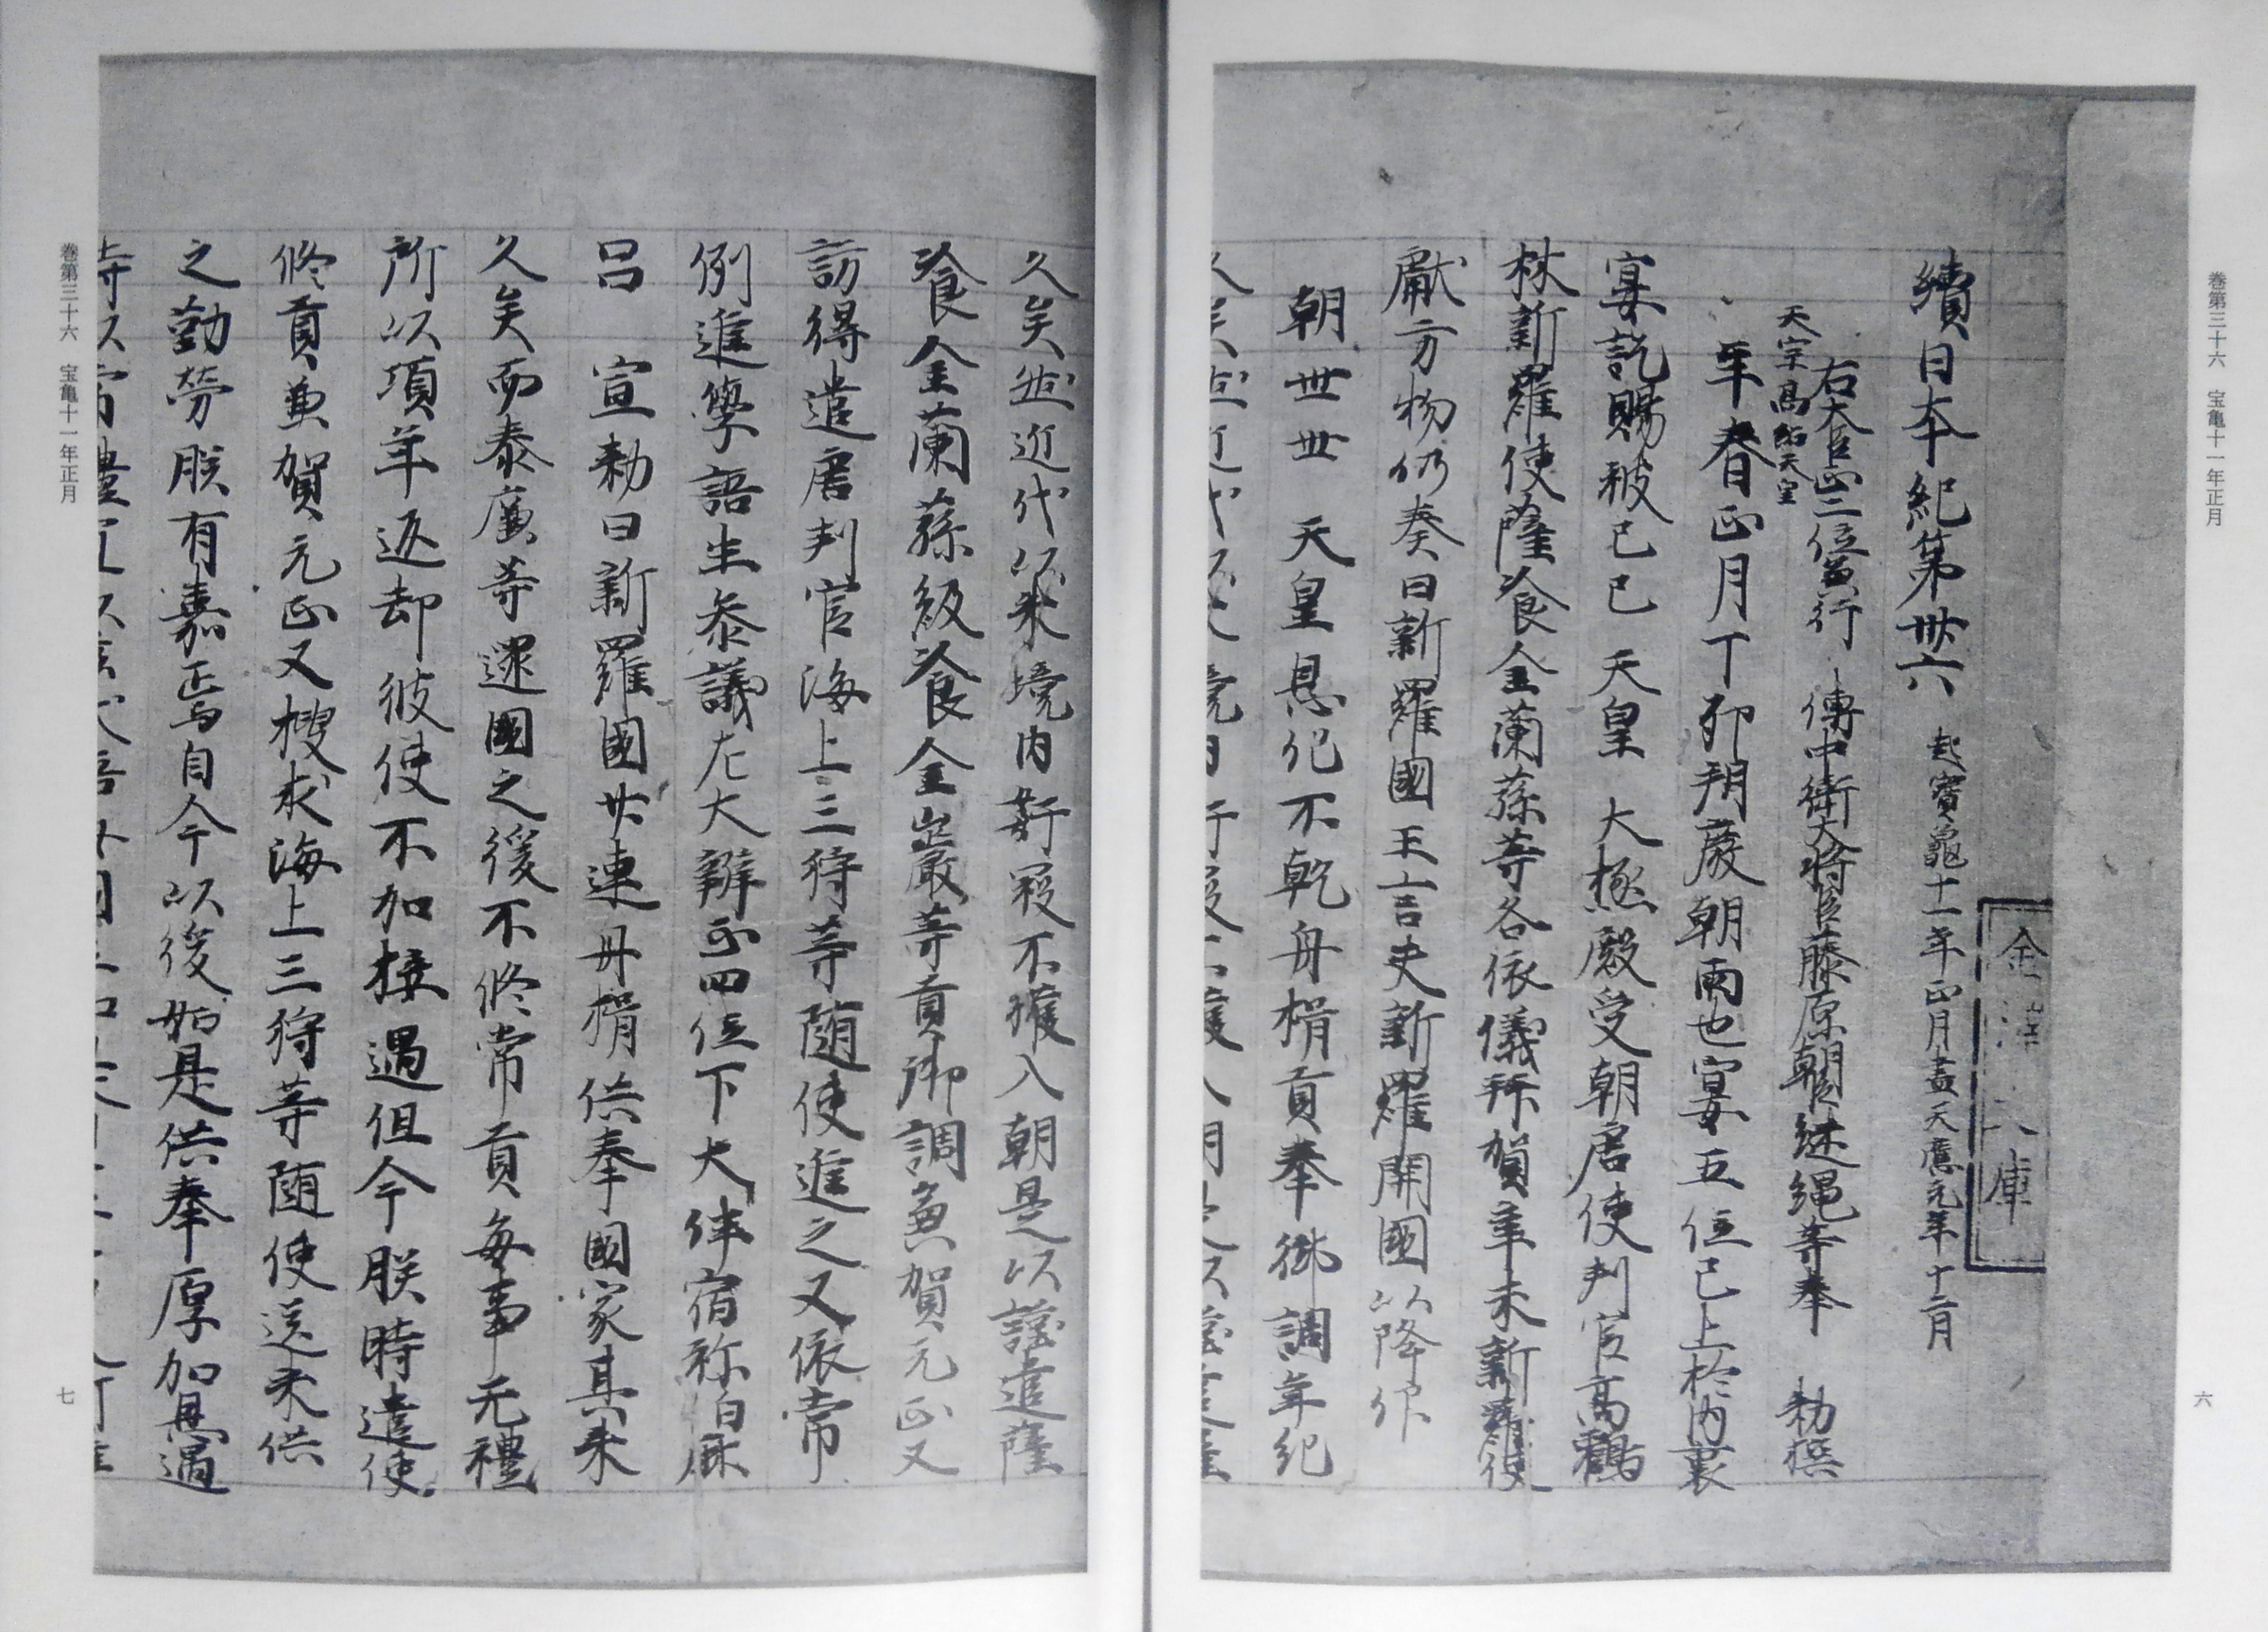 巻第三十六　宝亀十一年正月
六
金澤文庫
續日本紀第卅六　起寶龜十一年正月盡天應元年十二月
右大臣正二位兼行　傳中衛大将臣藤原朝臣継縄等奉　勅撰
天宗高紹天皇
十一年春正月丁卯朔廢朝雨也宴五位已上於内裏
宴訖賜被己巳　天皇　大極殿受朝唐使判官高鶴
林新羅使薩飡金蘭蓀等各依儀拝賀辛未新羅使
獻方物仍奏曰新羅國王言夫新羅開國以降仰
朝世世　天皇恩化不乾舟楫貢奉御調年紀
久矣然近代以来境内奸寇不獲入朝是以謹遣薩
飡金蘭蓀級飡金巖等貢御調兼賀元正又
訪得遣唐判官海上三狩等随使進之又依常
例進學語生参議左大辨正四位下大伴宿祢伯麻
呂　宣勅曰新羅國世連舟楫供奉國家其来
久矣而泰廉等還國之後不修常貢毎事无禮
所以項年返却彼使不加接遇但今朕時遣使
修貢兼賀元正又捜求海上三狩等随使送来供
之勤勞朕有嘉焉自今以後如是供奉厚加恩遇
待以常禮
巻第三十六　宝亀十一年正月
七